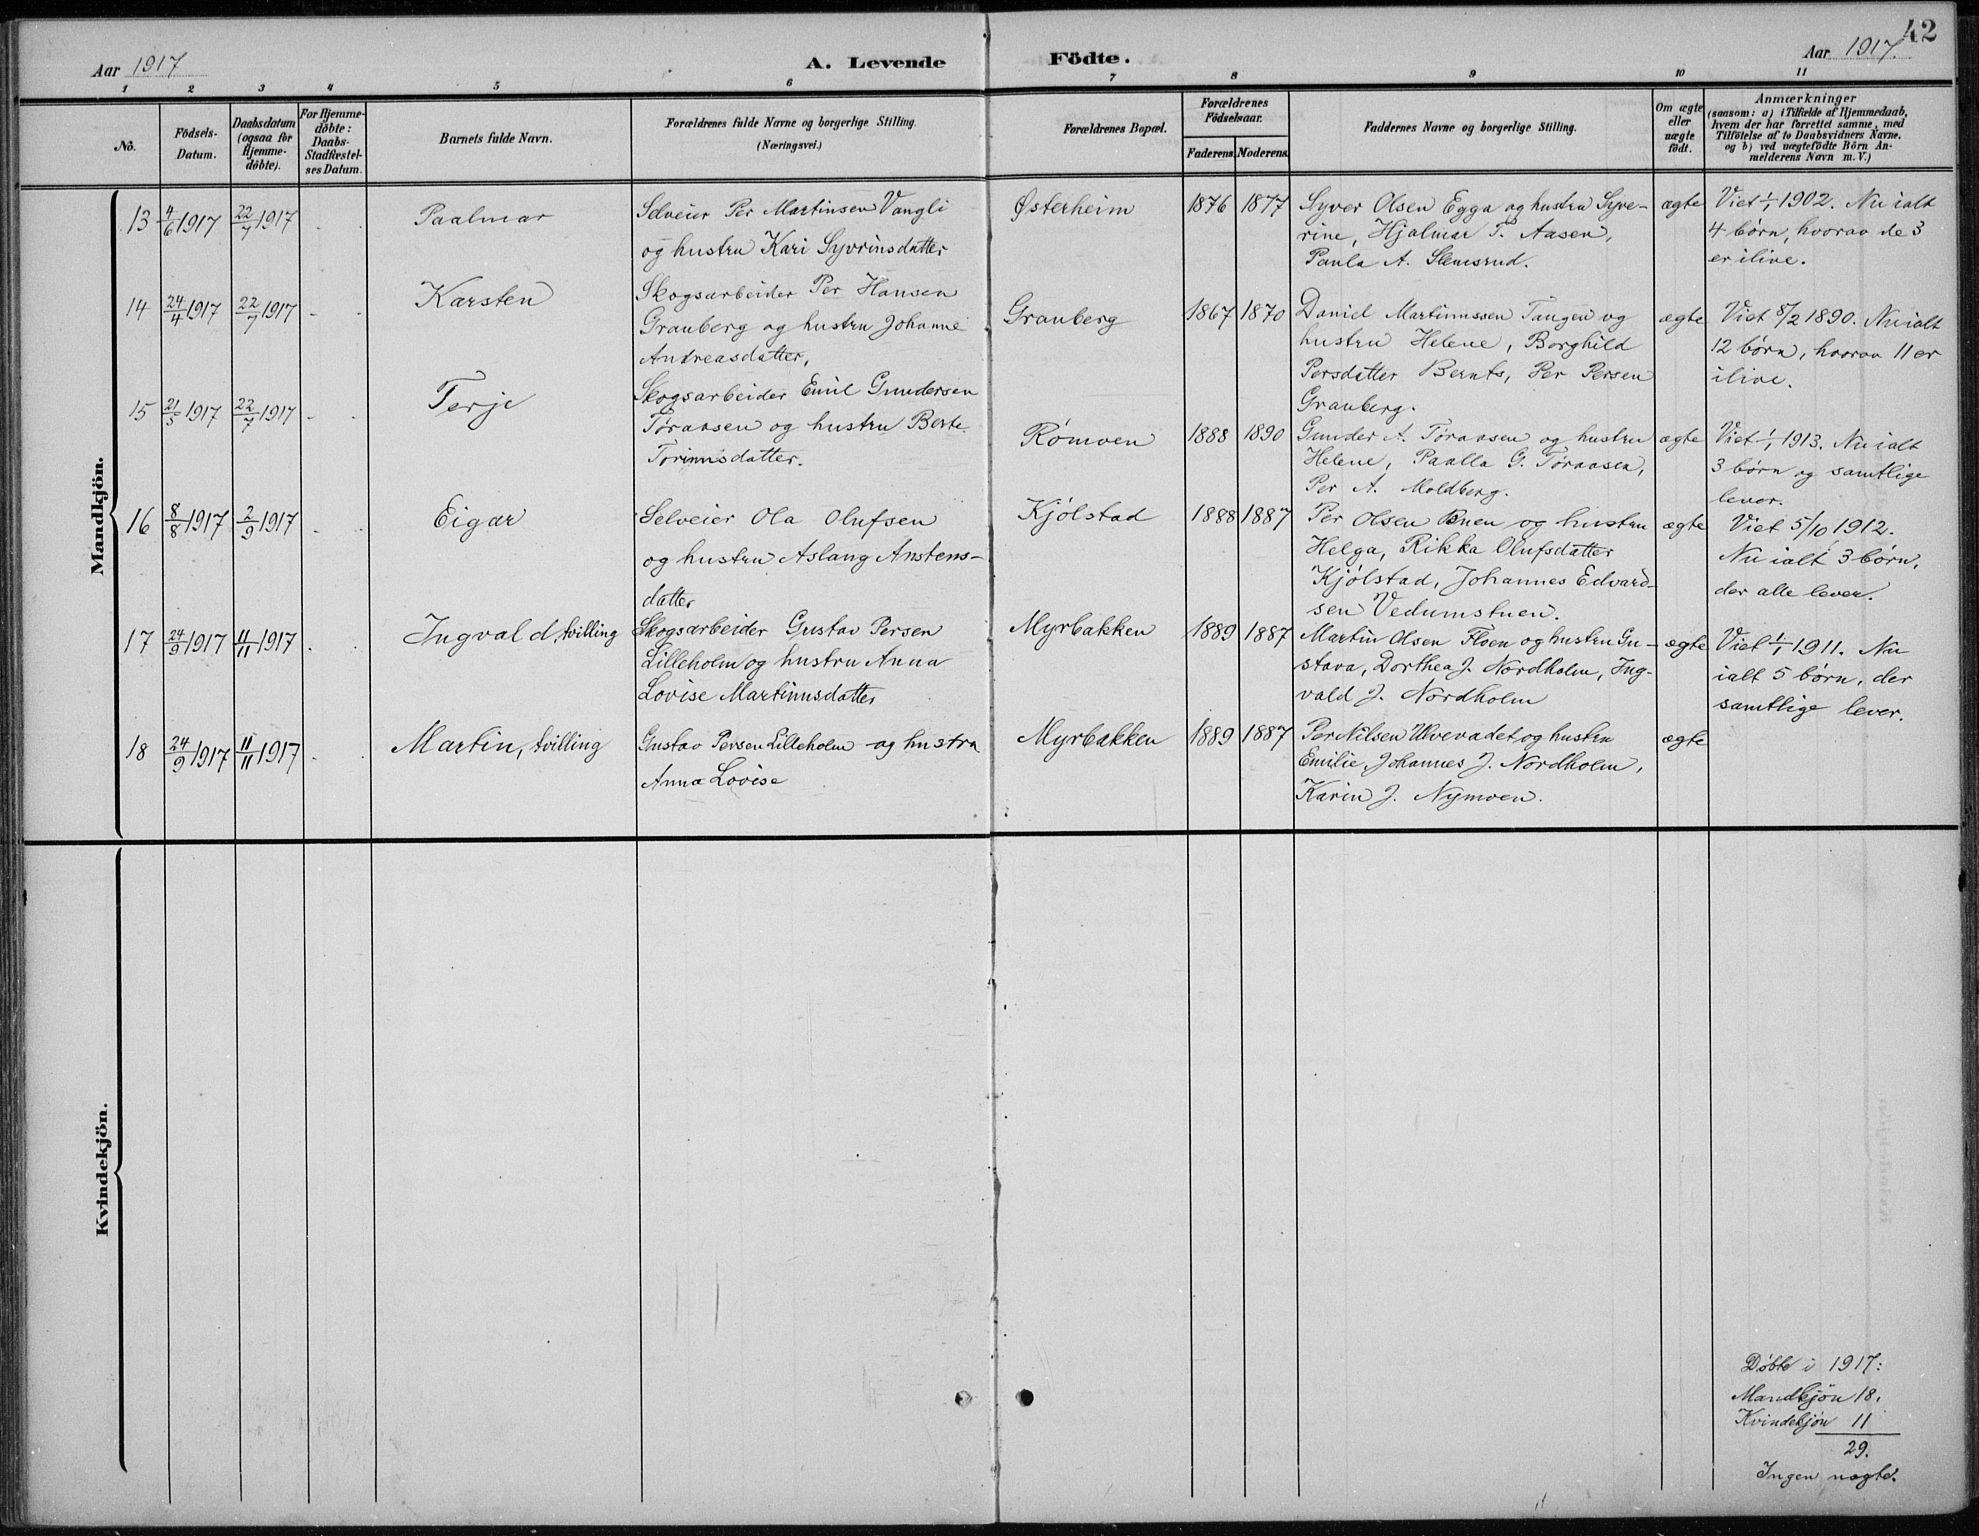 42
Aar 1917
A. Levende Födte.
Aar 1917.
1 2 3 4 5 6 7 8 9 10 11
No.
Födsels-
Datum.
Daabsdatum
(ogsaa for
Hjemme-
döbte).
For Hjemme-
döbte:
Daabs-
Stadfæstel-
ses Datum.
Barnets fulde Navn.
Forældrenes fulde Navne og borgerlige Stilling.
(Næringsvei.)
Forældrenes Bopæl.
Forældrenes
Födselsaar.
Faderens. Moderens.
Faddernes Navne og borgerlige Stilling.
Om ægte
eller
uægte
født.
Anmærkninger
(saasom: a) i Tilfælde af Hjemmedaab,
hvem der har forrettet samme, med
Tilföielse af to Daabsvidners Navne,
og b) ved uægtefödte Börn An-
melderens Navn m. V.)
Mandkjön.
13 4/6 1917 22/7 1917 Paalmar
Selveier Per Martinsen Vangli
og hustru Kari Syvrinsdatter
Østerheim 1876 1877
Syver Olsen Egga og hustru Syve-
rine, Hjalmar T. Aasen,
Paula A. Slemsrud.
ægte
Viet 1/1 1902. Nu ialt
4 børn, hvorav de 3
er ilive.
14 24/4 1917 22/7 1917 Karsten
Skogsarbeider Per Hansen
Granberg og hustru Johanne
Andreasdatter,
Granberg 1867 1870
Daniel Martinussen Tangen og
hustru Helene, Borghild
Persdatter Bernts, Per Persen
Granberg.
ægte
Viet 8/2 1890. Nu ialt
12 børn, hvorav 11 er
ilive.
15 21/5 1917 22/7 1917 Terje
Skogsarbeider Emil Gundersen
Tøraasen og hustru Berte
Torinusdatter.
Rømoen 1888 1890
Gunder A. Tøraasen og hustru
Helene, Paalla G. Tøraasen,
Per A. Moldberg.
ægte
Viet 1/1 1913. Nu ialt
3 børn og samtlige
lever.
16 8/8 1917 2/9 1917 Eigar
Selveier Ola Olufsen
og hustru Aslaug Anstens-
datter
Kjølstad 1888 1887
Per Olsen Buen og hustru
Helga, Rikka Olufsdatter
Kjølstad, Johannes Edvard-
sen Vedumstuen.
ægte
Viet 5/10 1912.
Nu ialt 3 børn,
der alle lever.
17 24/9 1917 11/11 1917 Ingvald, tvilling
Skogsarbeider Gustav Persen
Lilleholm og hustru Anna
Lovise Martinusdatter
Myrbakken 1889 1887
Martin Olsen Floen og hustru Gu-
stava, Dorthea J. Nordholm, Ing-
vald J. Nordholm
ægte
Viet 1/1 1911. Nu
ialt 5 børn, der
samtlige lever.
18 24/9 1917 11/11 1917 Martin, tvilling
Gustav Persen Lilleholm og hustru
Anna Lovise
Myrbakken 1889 1887
Per Nilsen Ulvevadet og hustru
Emilie, Johannes J. Nordholm,
Karin J. Nymoen.
ægte
Kvindekjön.
Døbte i 1917:
Mandkjøn 18.
Kvindekjøn 11
29.
Ingen uægte.